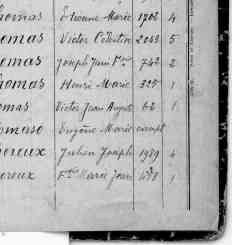 homas Etienne Marie 1902 4
homas Victor Célestin 2043 5
omas Joseph Jean F.ois 742 2
homas Henri Marie 325 1
omas Victor Jean August 62 1
omaso Eugène Marie exempt
horeux Julien Joseph 1989 4
oreux F.ois Marie Jean 1